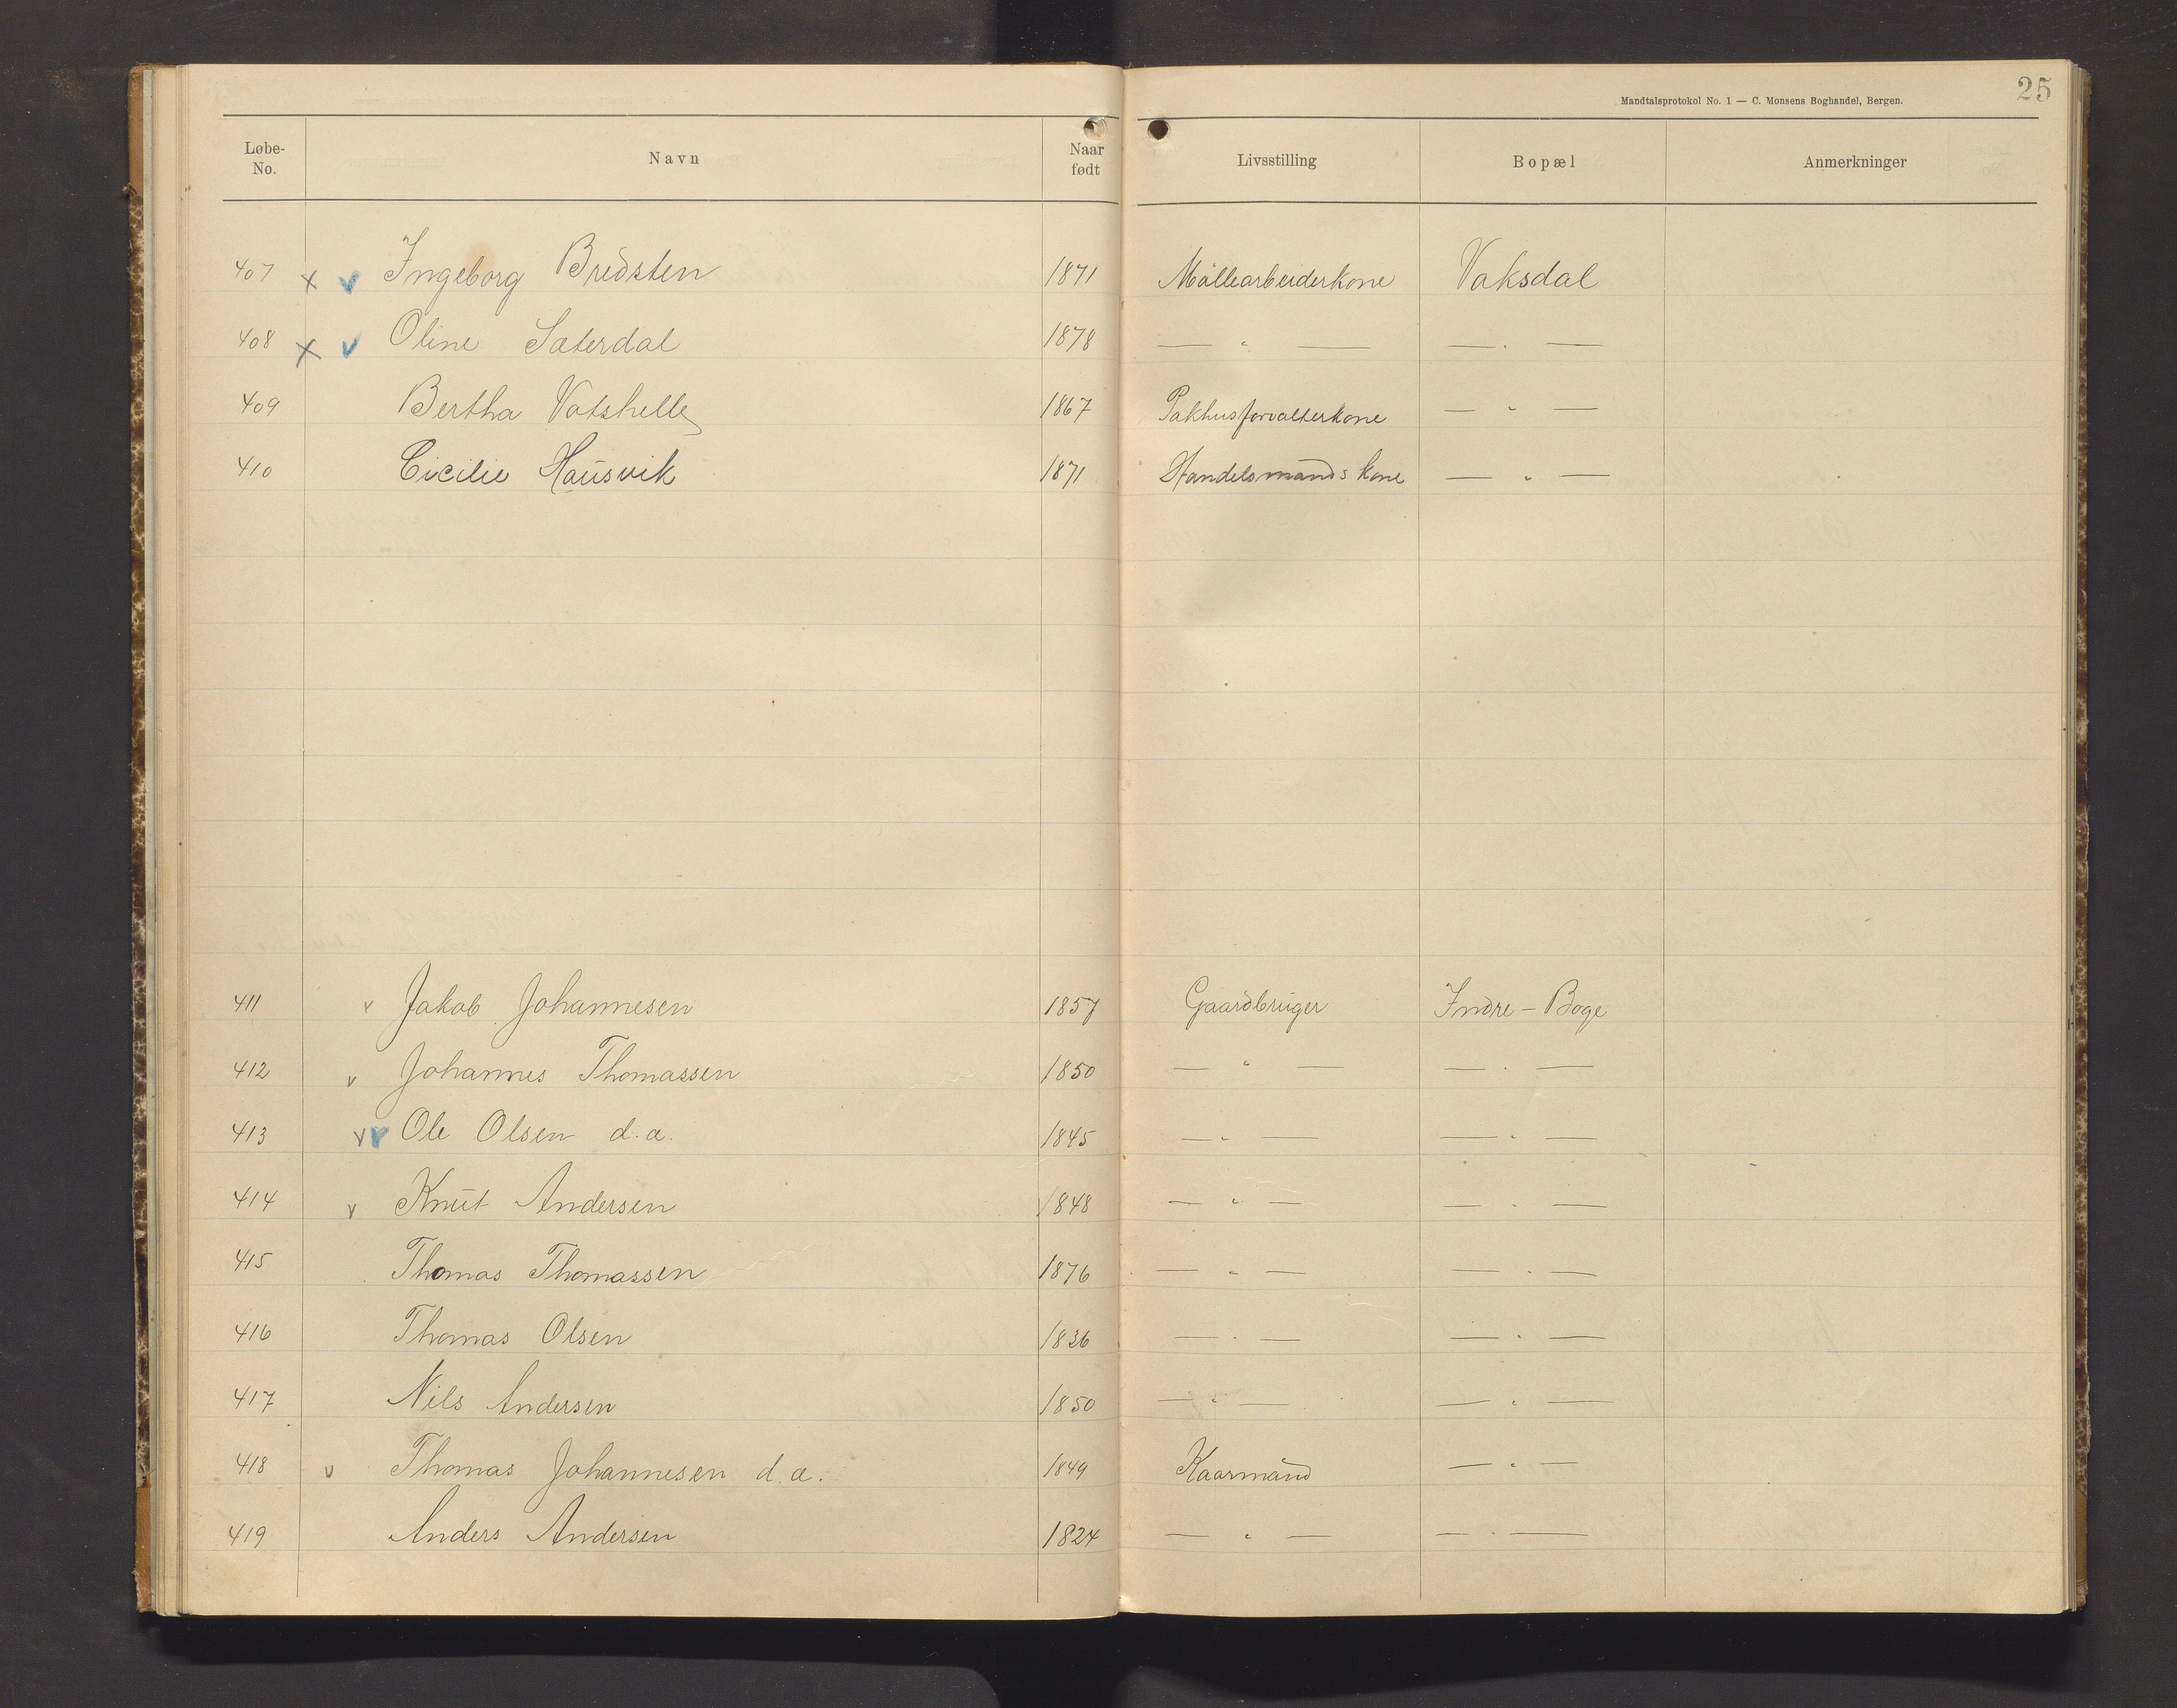 25
Mandtalsprotokol No. 1 — C. Monsens Boghandel, Bergen.
Løbe-No. Navn Naar født Livsstilling Bopæl Anmerkninger
407 x v Ingeborg Bredsten 1871 Møllearbeiderkone Vaksdal
408 x v Oline Sæterdal 1878 — " — — " —
409 Bertha Vatshelle 1867 Pakhusforvalterkone — " —
410 Cicilie Hausvik 1871 Handelsmands kone — " —
411 v Jakob Johannesen 1857 Gaardbruger Indre-Boge
412 v Johannes Thomassen 1850 — " — — " —
413 v v Ole Olsen d.a. 1845 — " — — " —
414 v Knut Andersen 1848 — " — — " —
415 Thomas Thomassen 1876 — " — — " —
416 Thomas Olsen 1836 — " — — " —
417 Nils Andersen 1850 — " — — " —
418 v Thomas Johannesen d.a. 1849 Kaarmand — " —
419 Anders Andersen 1824 — " — — " —